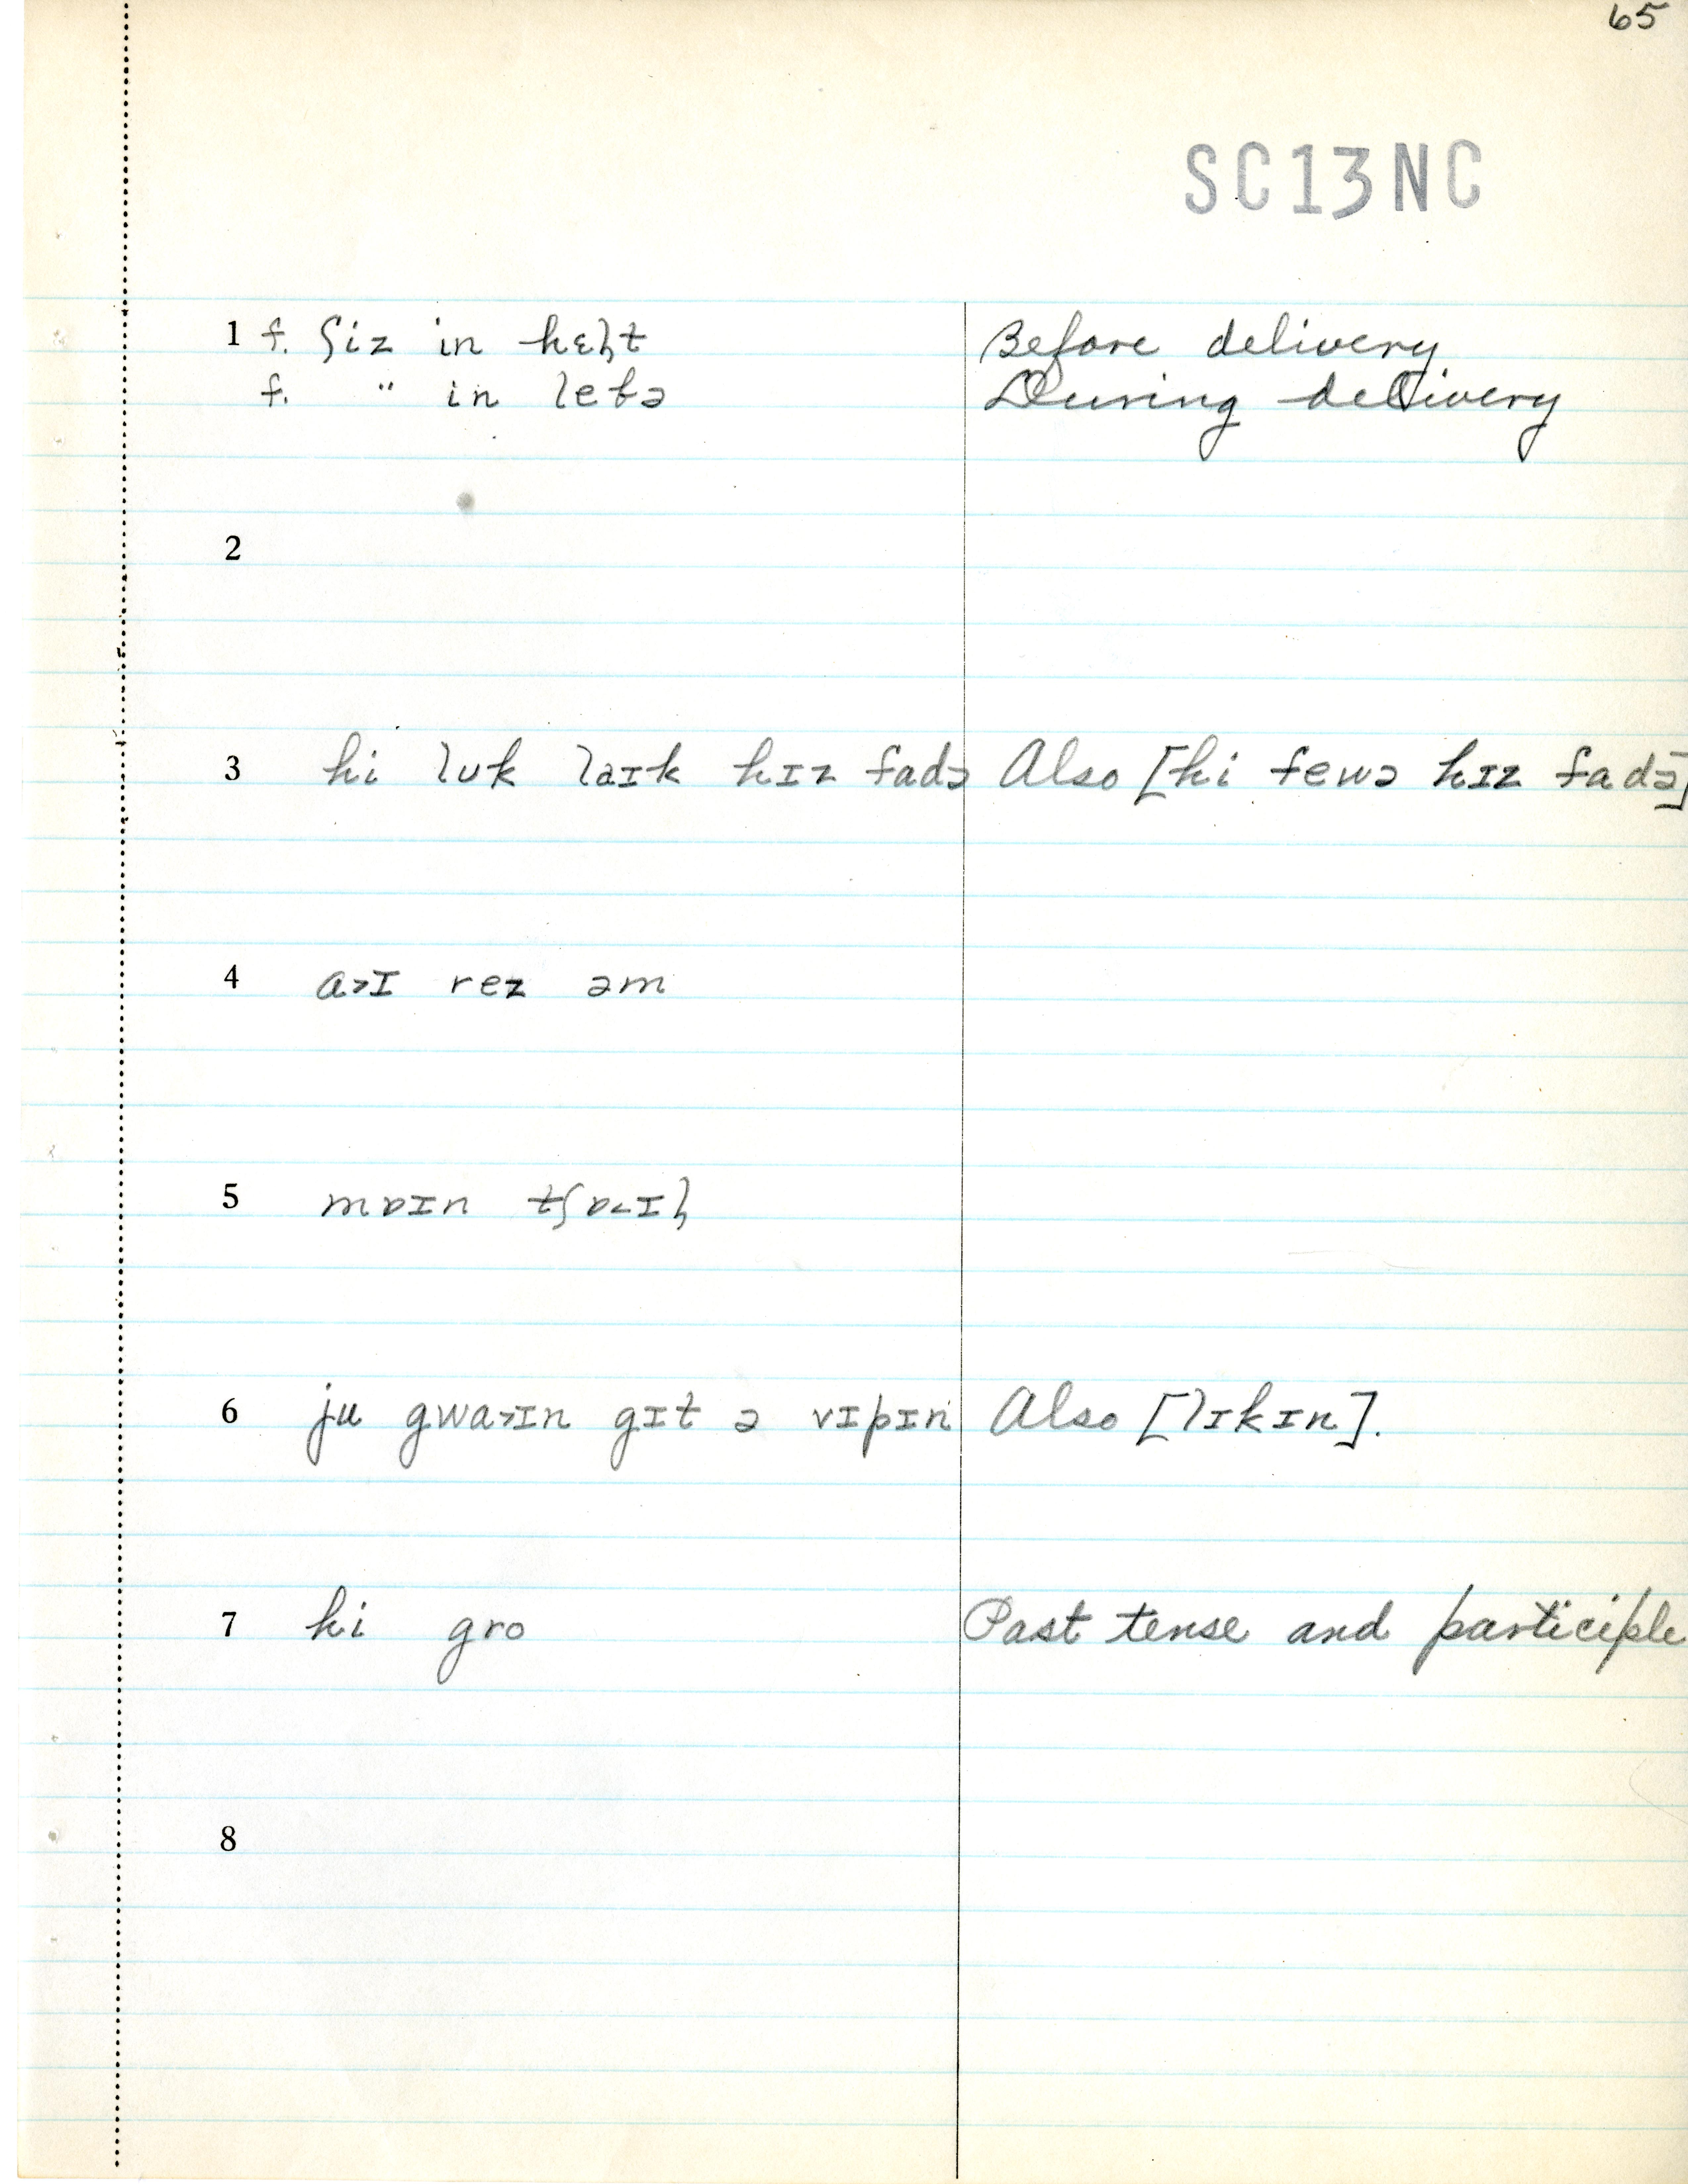 65
SC13NC
1 f. ʃiz in hɛlt Before delivery
f. " in lebə During delivery
2
3 hi lʊk laɪk hɪz fadə Also [hi fewə hɪz fadə]
4 a˃ɪ rez əm
5 mɒɪn tʃɒ˂ɪl
6 ju gwa˃ɪn gɪt ə vɪpɪn Also [lɪkɪn].
7 hi gro Past tense and participle
8